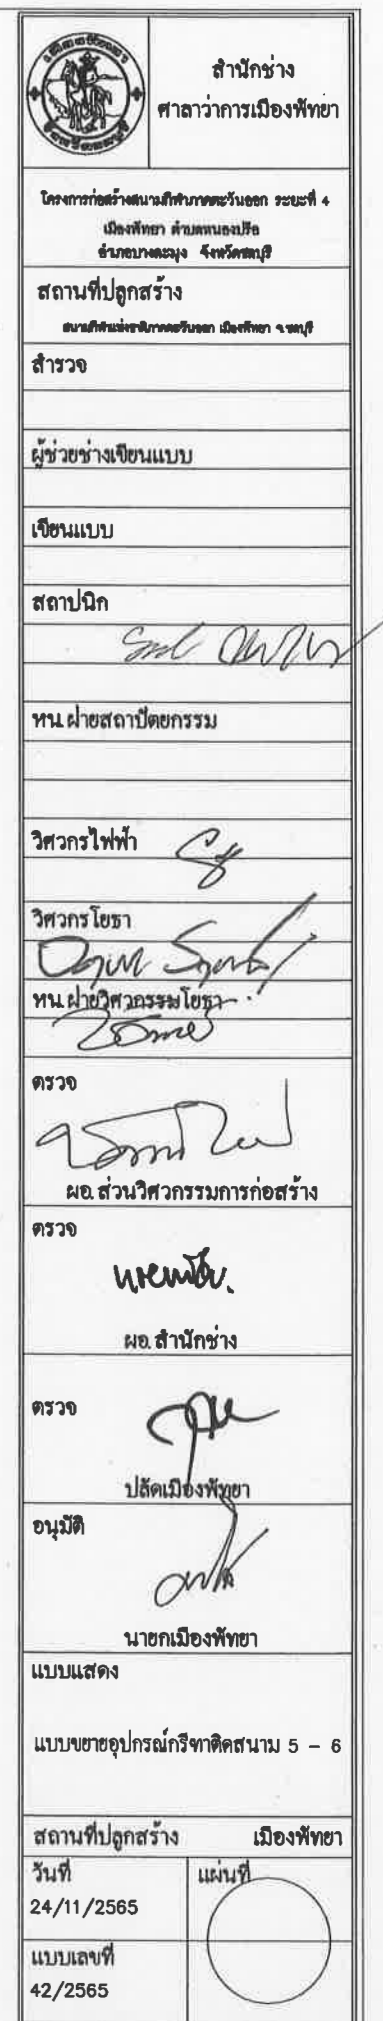 สำนักช่าง
ศาลาว่าการเมืองพัทยา
โครงการก่อสร้างสนามกีฬาภาคตะวันออก ระยะที่ 4
เมืองพัทยา ตำบลหนองปรือ
อำเภอบางละมุง จังหวัดชลบุรี
สถานที่ปลูกสร้าง
สนามกีฬาแห่งชาติภาคตะวันออก เมืองพัทยา จ.ชลบุรี
สำรวจ
ผู้ช่วยช่างเขียนแบบ
เขียนแบบ
สถาปนิก
หน.ฝ่ายสถาปัตยกรรม
วิศวกรไฟฟ้า
วิศวกรโยธา
หน.ฝ่ายวิศวกรรมโยธา
ตรวจ
ผอ.ส่วนวิศวกรรมการก่อสร้าง
ตรวจ
ผอ.สำนักช่าง
ตรวจ
ปลัดเมืองพัทยา
อนุมัติ
นายกเมืองพัทยา
แบบแสดง
แบบขยายอุปกรณ์กรีฑาติดสนาม 5 - 6
สถานที่ปลูกสร้าง เมืองพัทยา
วันที่ แผ่นที่
24/11/2565
แบบเลขที่
42/2565